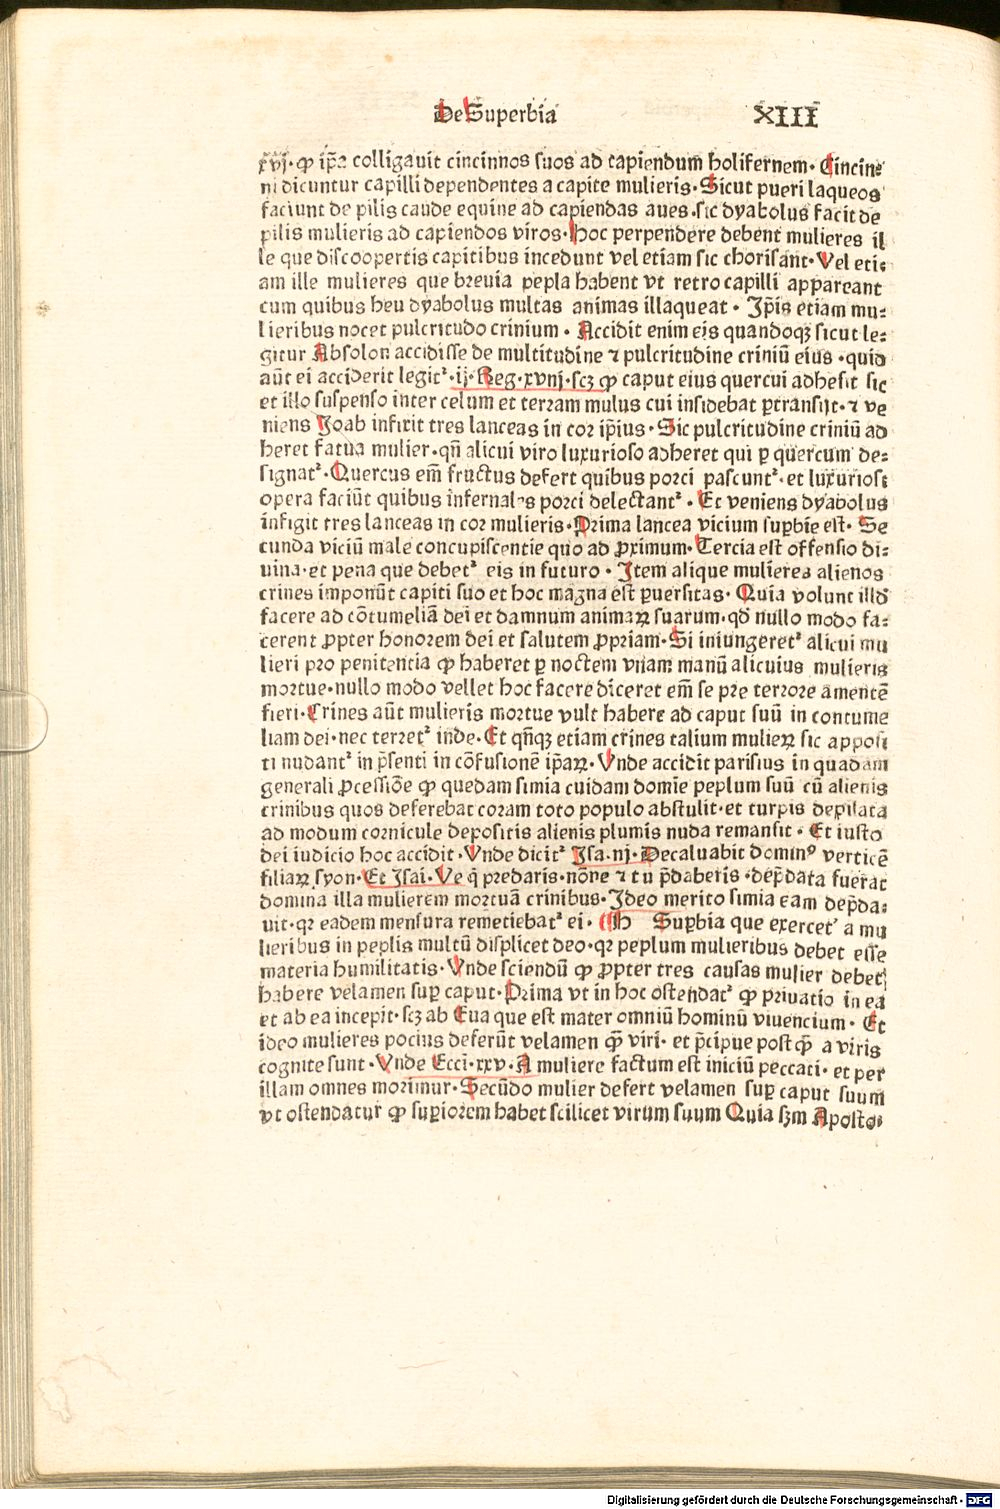 De Superbia XIII
xvj· ꝙ ip̄a colligauit cincinnos suos ad capiendum holifernem· Cincin⸗
ni dicuntur capilli dependentes a capite mulieris· Sicut pueri laqueos
faciunt de pilis caude equine ad capiendas aues· sic dyabolus facit de
pilis mulieris ad capiendos viros· Hoc perpendere debent mulieres il
le que discoopertis capitibus incedunt vel etiam sic chorisant· Vel eti⸗
am ille mulieres que breuia pepla habent vt retro capilli appareant
cum quibus heu dyabolus multas animas illaqueat · Ip̄is etiam mu⸗
lieribus nocet pulcritudo crinium · Accidit enim eis quandoqꝫ sicut le⸗
gitur Absolon accidisse de multitudine ⁊ pulcritudine criniū eius · quid
aūt ei acciderit legit᷑ · ij· Reg· xvnj· scꝫ ꝙ caput eius quercui adhesit sic
et illo suspenso inter celum et terram mulus cui insidebat ꝑtransijt· ⁊ ve
niens Joab infixit tres lanceas in cor ip̄ius· Sic pulcritudine criniū ad
heret fatua mulier· qn̄ alicui viro luxurioso adheret qui ꝑ quercum de⸗
signat᷑· Quercus em̄ fructus defert quibus porci pascunt᷑· et luxuriosi
opera faciūt quibus infernales porci delectant᷑ · Et veniens dyabolus
infigit tres lanceas in cor mulieris· Prima lancea vicium suꝑbie est· Se
cunda viciū male concupiscentie quo ad ꝓximum· Tercia est offensio di⸗
uina· et pena que debet᷑ eis in futuro · Item alique mulieres alienos
crines imponūt capiti suo et hoc magna est ꝑuersitas· Quia volunt illd̄
facere ad cōtumeliā dei et damnum animaꝝ suarum· qd̄ nullo modo fa⸗
cerent ꝓpter honorem dei et salutem ꝓpriam· Si iniungeret᷑ alicui mu
lieri pro penitentia ꝙ haberet ꝑ noctem vnam manū alicuius mulieris
mortue· nullo modo vellet hoc facere diceret em̄ se pre terrore amentē
fieri· Crines aūt mulieris mortue vult habere ad caput suū in contume
liam dei· nec terret᷑ inde· Et qn̄qꝫ etiam crines talium mulieꝝ sic apposi
ti nudant᷑ in p̄senti in cōfusionē ip̄aꝝ· Vnde accidit parisius in quadam
generali ꝓcessiōe ꝙ quedam simia cuidam domīe peplum suū cū alienis
crinibus quos deferebat coram toto populo abstulit· et turpis depilata
ad modum cornicule depositis alienis plumis nuda remansit · Et iusto
dei iudicio hoc accidit · Vnde dicit᷑ Isa· nj· Decaluabit dominꝰ verticē
filiaꝝ syon· Et Isai· Ve q̇ predaris· nōne ⁊ tu p̄daberis · dep̄data fuerat
domina illa mulierem mortuā crinibus· Ideo merito simia eam dep̄da⸗
uit· qꝛ eadem mensura remetiebat᷑ ei· ¶ H Suꝑbia que exercet᷑ a mu
lieribus in peplis multū displicet deo· qꝛ peplum mulieribus debet esse
materia humilitatis· Vnde sciendū ꝙ ꝓpter tres causas mulier debet
habere velamen suꝑ caput· Prima vt in hoc ostendat᷑ ꝙ priuatio in ea
et ab ea incepit· scꝫ ab Eua que est mater omniū hominū viuencium · Et
ideo mulieres pocius deferūt velamen qꝫ̄ viri· et p̄cipue post qꝫ̄ a viris
cognite sunt · Vnde Ecci· xxv· A muliere factum est iniciū peccati· et per
illam omnes morimur· Secūdo mulier defert velamen suꝑ caput suum
vt ostendatur ꝙ suꝑiorem habet scilicet virum suum Quia sꝫm Aposto⸗
Digitalisierung gefördert durch die Deutsche Forschungsgemeinschaft - DFG